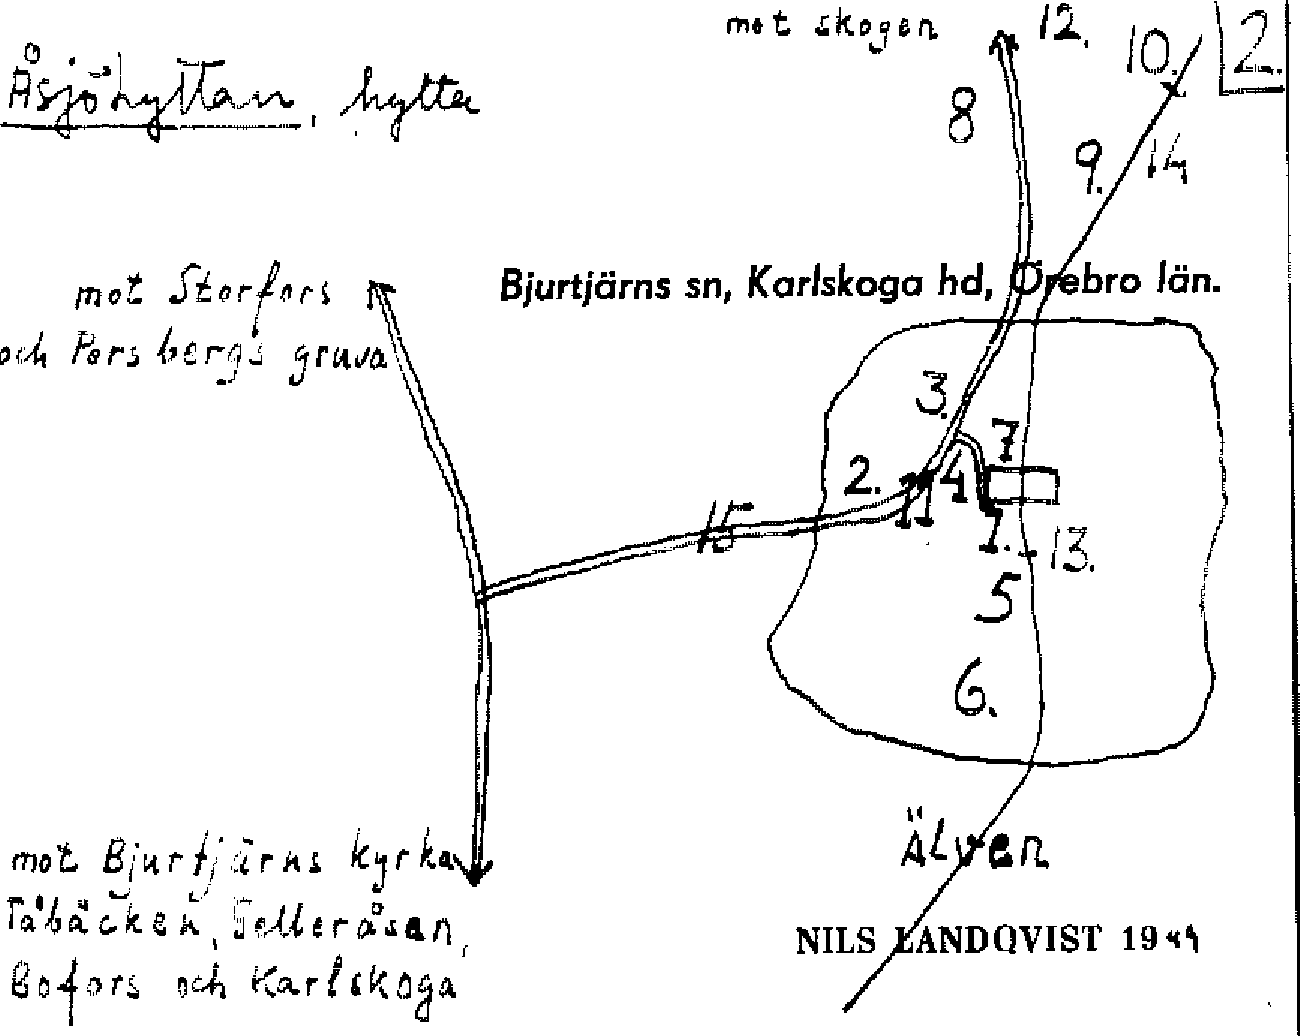 mot skogen 12. 10. 2.
Åsjöhyttan, hytta
8
9. 14
mot Storfors
Bjurtjärns sn, Karlskoga hd, Örebro län.
och Persbergs gruva
3.
7
2. 4
15 11
1. 13.
5
6.
Älven
mot Bjurtjärns kyrka
Tåbäcken, Felleråsen,
NILS LANDQVIST 1944
Bofors och Karlskoga